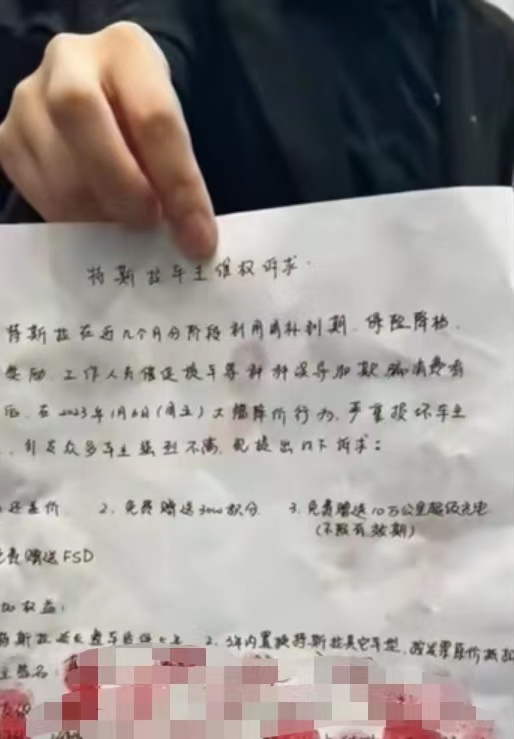 特斯拉车主维权诉求.
特斯拉在近几个月分阶段利用国补到期、保险降档、
奖励、工作人员催促提车等种种误导加欺骗消费者
后,在2023年1月6日(周五)大幅降价行为,严重损坏车主
,引发众多车主强烈不满,现提出以下诉求:
还差价 2.免费赠送3000积分 3.免费赠送10万公里超级充电
(不限有效期)
免费赠送FSD
权益:
特斯拉延长整车质保 2.5年内置换特斯拉其它车型,
主签名: